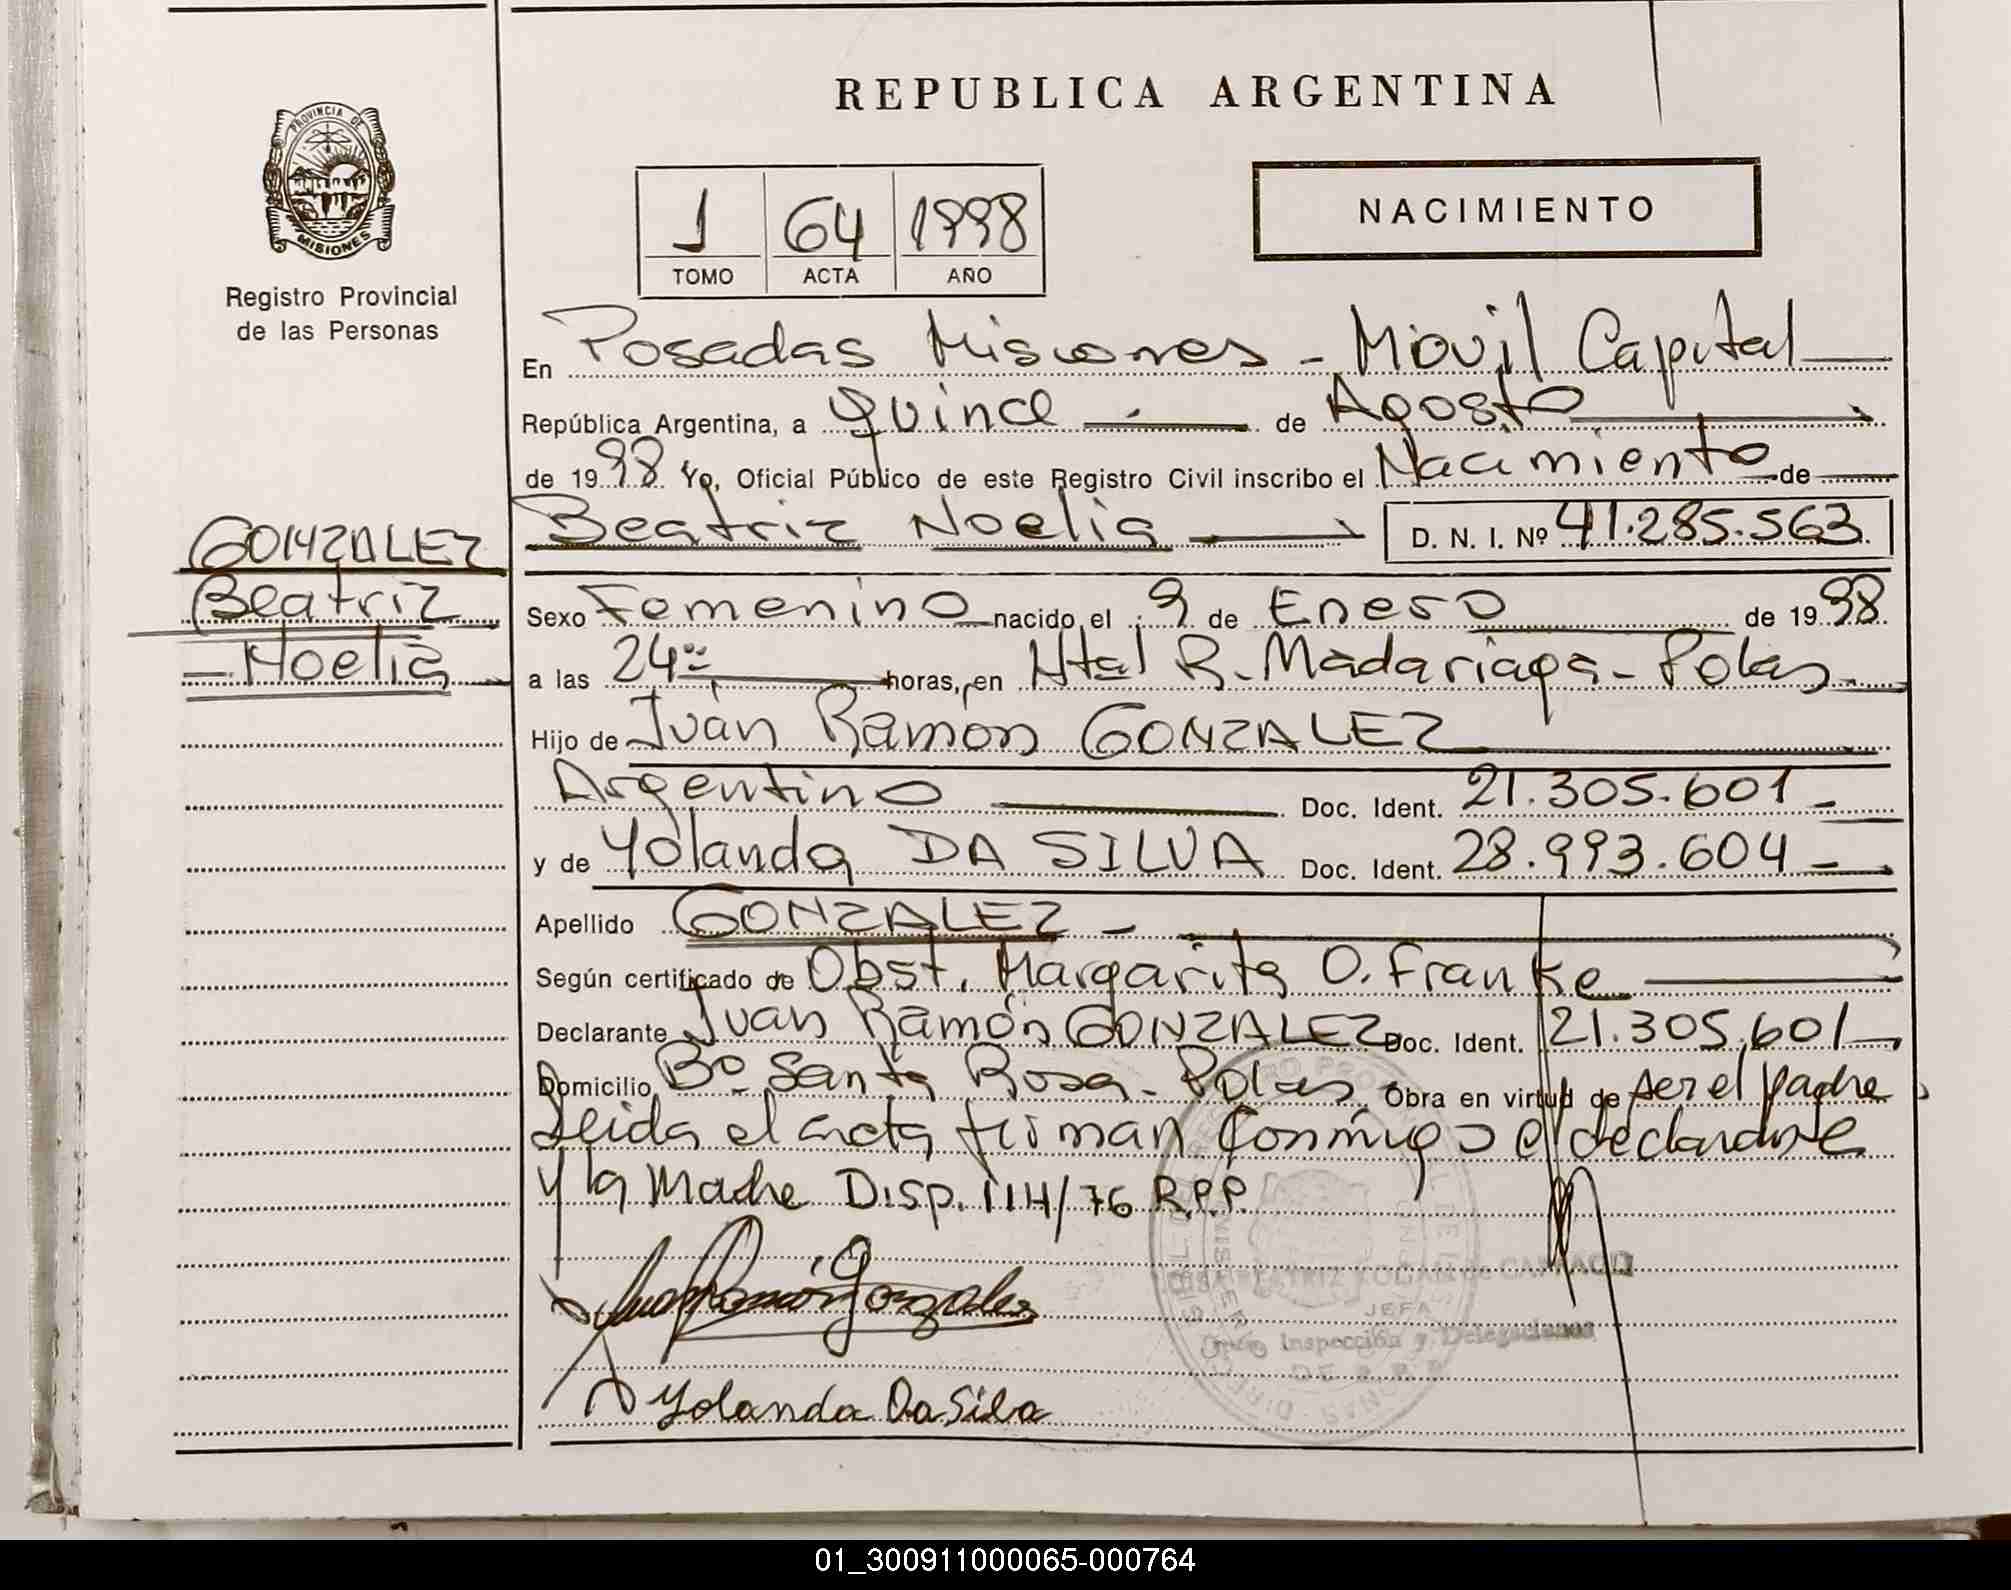 REPUBLICA ARGENTINA
PROVINCIA DE
MISIONES
Registro Provincial
de las Personas
1 64 1998
TOMO ACTA AÑO
NACIMIENTO
En Posadas Misiones - Móvil Capital
República Argentina, a quince de Agosto
de 1998 Yo, Oficial Público de este Registro Civil inscribo el Nacimiento de
GONZALEZ
Beatriz
- Noelia
Beatriz Noelia D. N. I. Nº 41.285.563
Sexo Femenino nacido el 9 de Enero de 1998
a las 24 horas, en Htal R. Madariaga - Pdas
Hijo de Juan Ramón GONZALEZ
Argentino Doc. Ident. 21.305.601 -
y de Yolanda DA SILVA Doc. Ident. 28.993.604 -
Apellido GONZALEZ -
Según certificado de Obst. Margarita O. Franke
Declarante Juan Ramón GONZALEZ Doc. Ident. 21.305.601
Domicilio Bº Santa Rosa - Pdas Obra en virtud de ser el padre
Leida el acta firman conmigo el declarante
y la Madre Disp. 114/76 R.P.P.
Juan Ramón Gonzalez
JEFA
Inspección y Delegaciones
Yolanda Da Silva
01_300911000065-000764